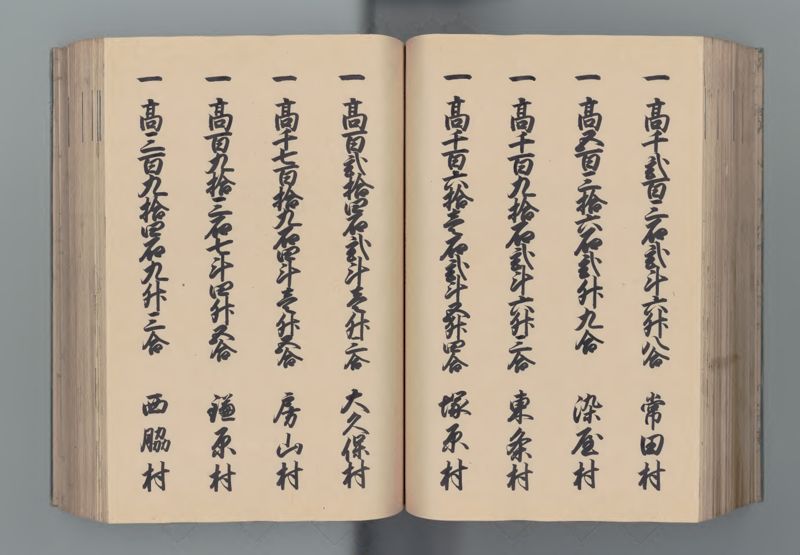 一 高千弐百三石弐斗六升八合 常田村
一 高五百三拾六石弐升九合 染屋村
一 高千百九拾石弐斗六升三合 東条村
一 高千百六拾壱石弐斗五升四合 塚原村
一 高百弐拾四石弐斗壱升二合 大久保村
一 高千七百拾九石四斗壱升五合 房山村
一 高百九拾三石七斗四升五合 鎌原村
一 高二百九拾四石九升三合 西脇村